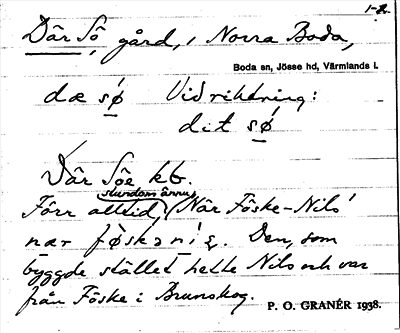 1-2.
Där Sö, gård, i Norra Boda,
Boda sn, Jösse hd, Värmlands l.
dæ sǿ Vid riktning:
dit sǿ
Där Söe kb.
stundom ännu
Förr alltid, (När Föske-Nils'
nær fø̀skəni̹ʂ. Den, som
byggde stället hette Nils och var
från Föske i Brunskog.
P. O. GRANÉR 1938.